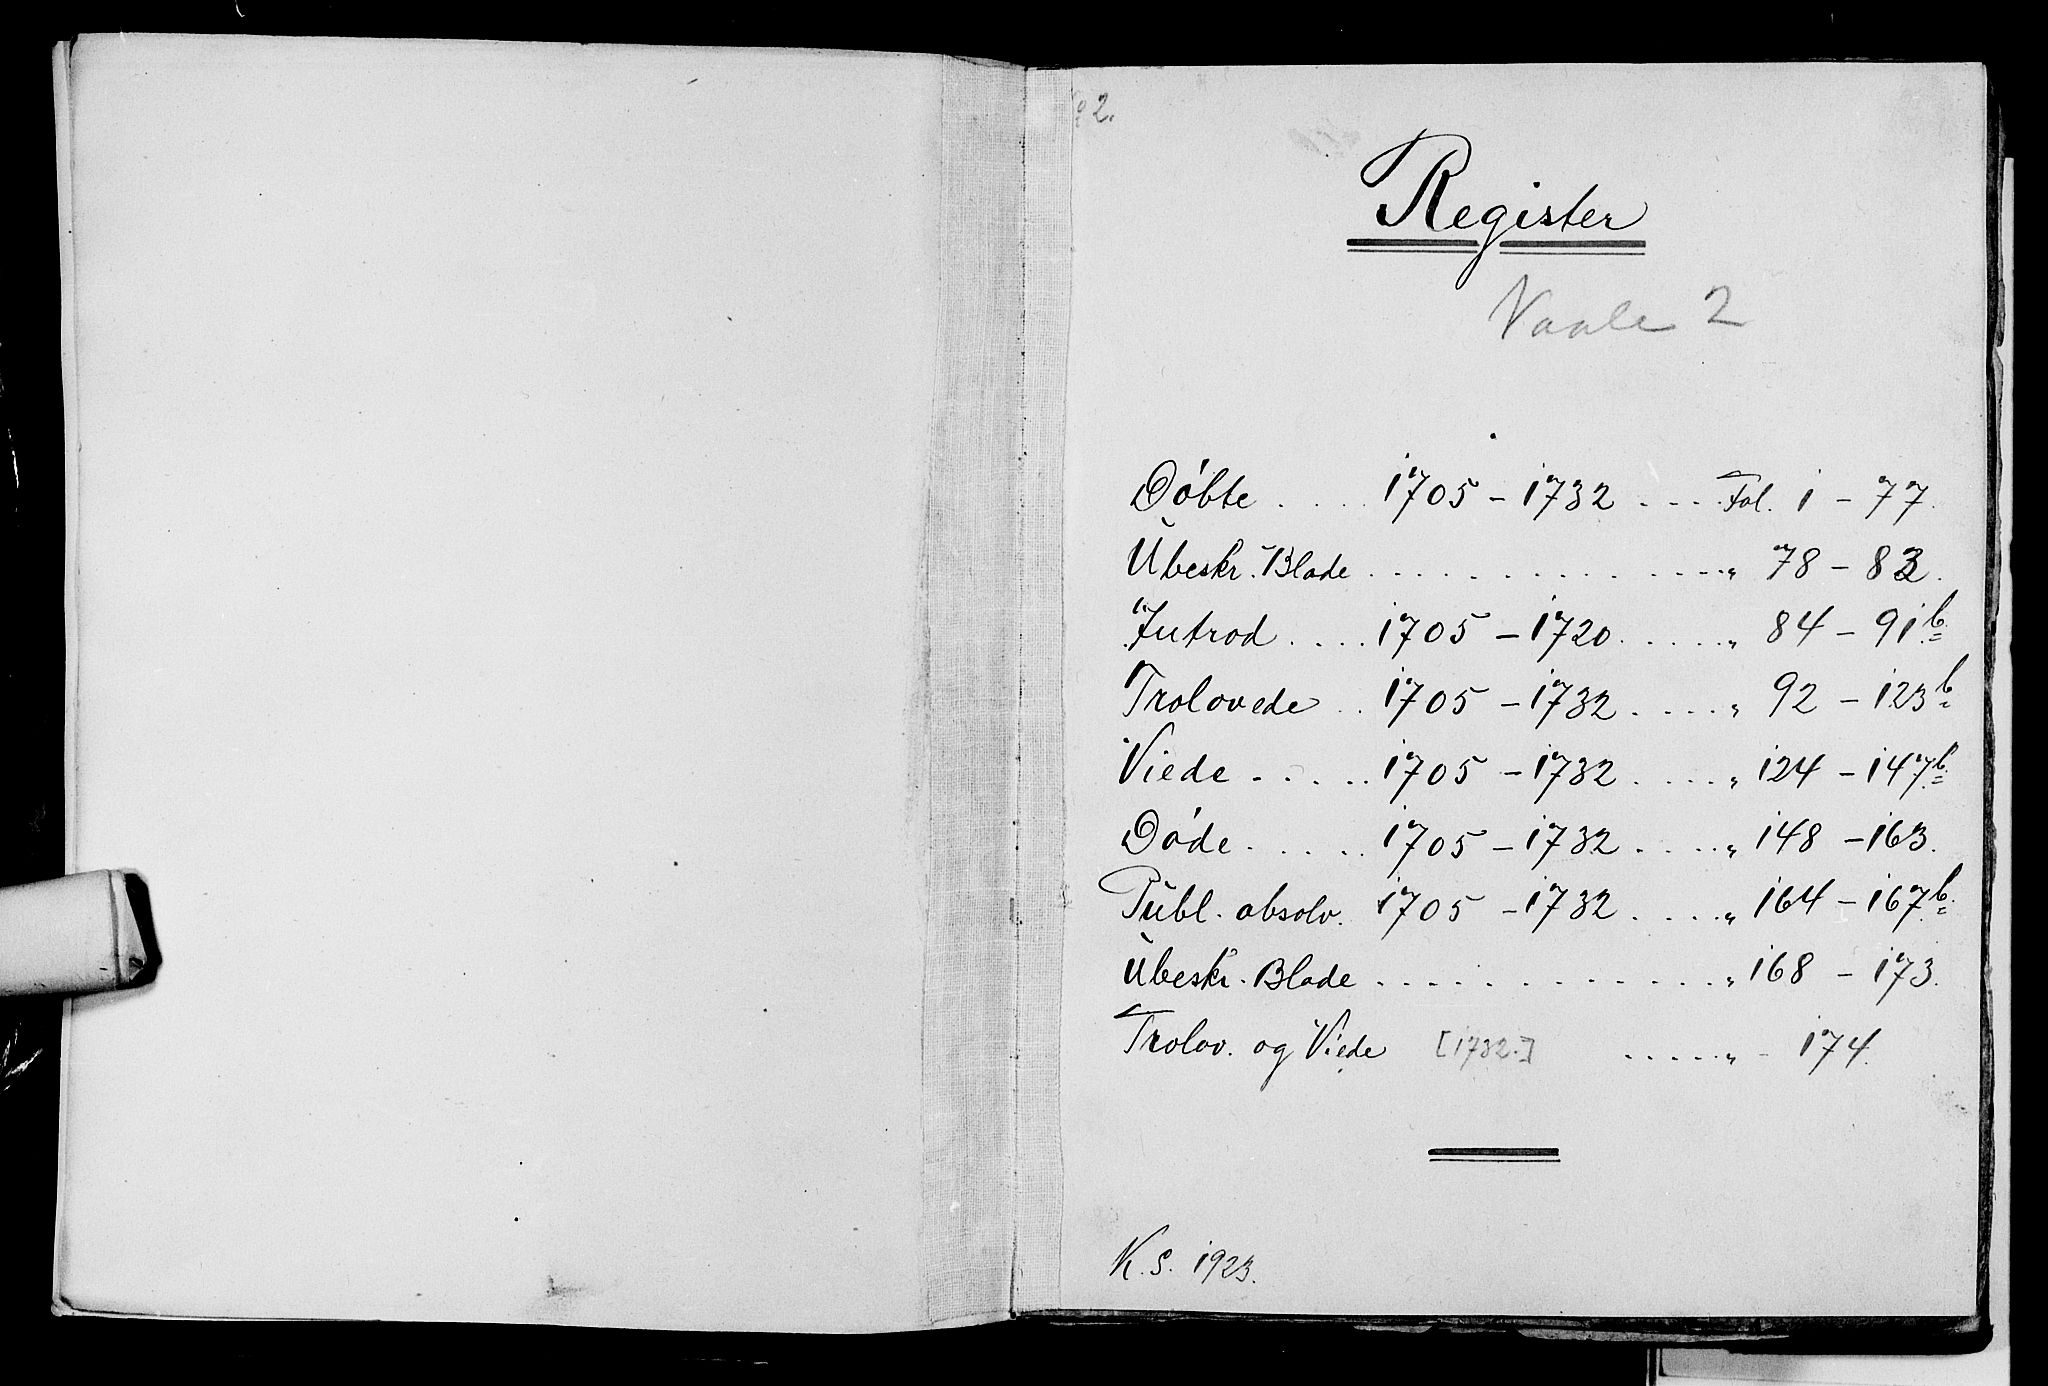 2.
Register
Vaale 2
Döbte . . . . 1705 – 1732 . . . . Fol. 1 – 77.
Ubeskr. Blade . . . . . . . . . . . . „ 78 – 83.
Introd . . . . 1705 – 1720 . . . . . „ 84 – 91b.
Trolovede . . 1705 – 1732 . . . . „ 92 – 123b
Viede . . . . . 1705 – 1732 . . . . „ 124 – 147b.
Döde . . . . . 1705 – 1732 . . . . „ 148 – 163.
Publ. absolv. 1705 – 1732 . . . . „ 164 – 167b.
Ubeskr. Blade . . . . . . . . . . . . . „ 168 – 173.
Trolov. og Viede [1732.] . . . . . „ – 174.
K. S. 1923.